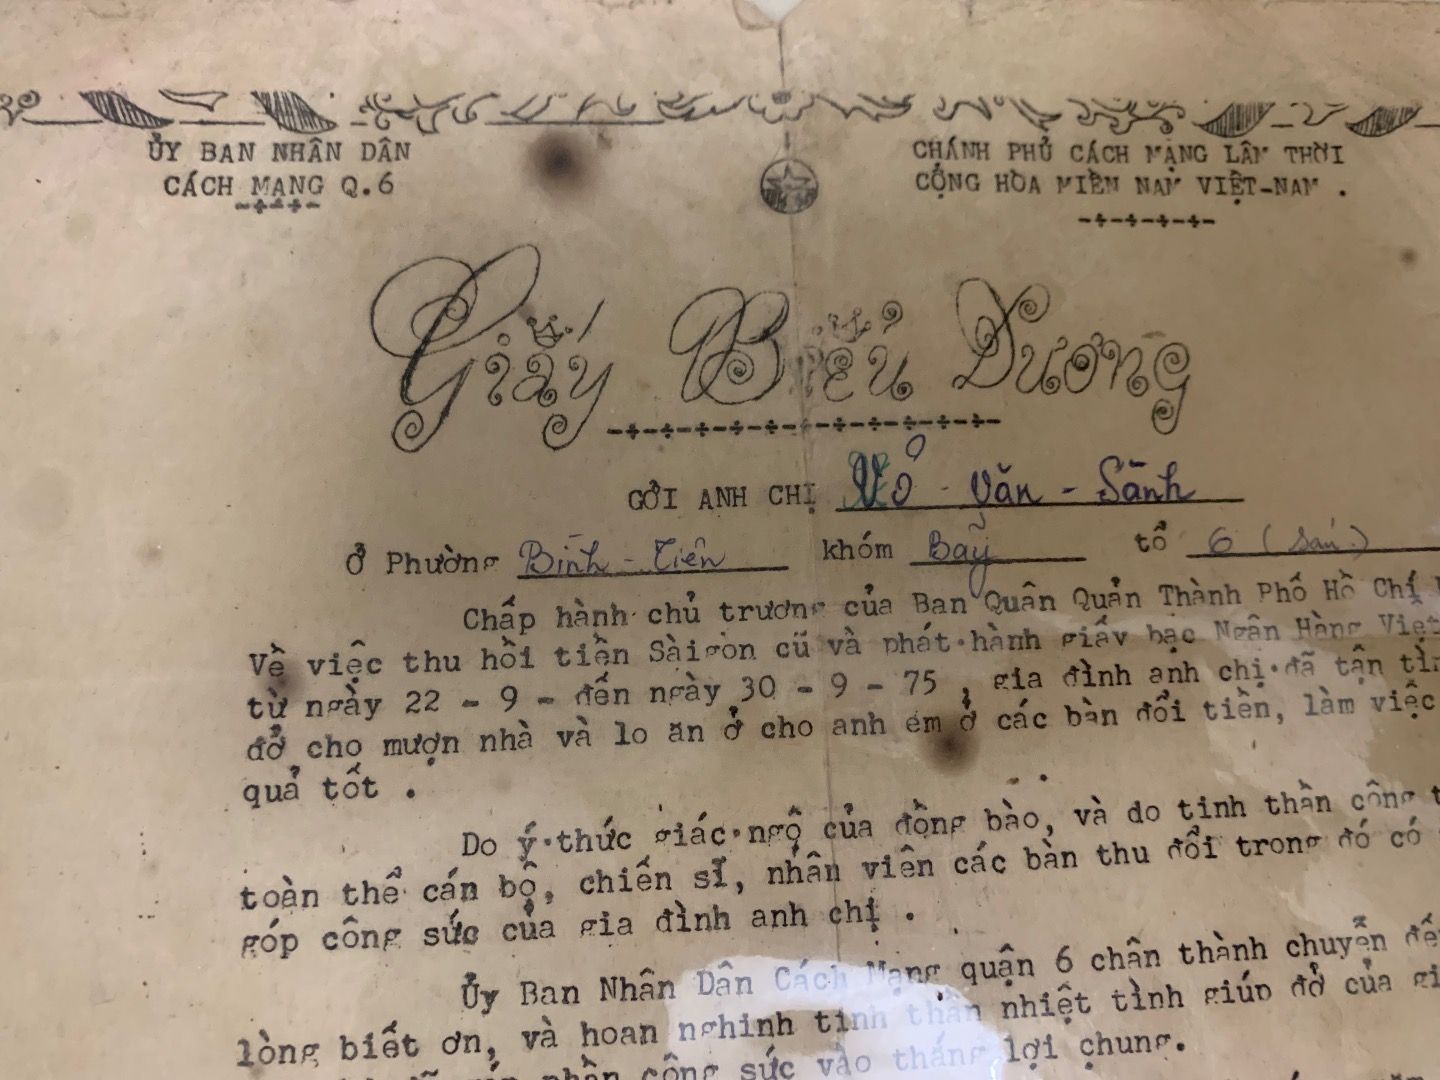 ỦY BAN NHÂN DÂN
CÁCH MẠNG Q.6
CHÁNH PHỦ CÁCH MẠNG LÂM THỜI
CỘNG HÒA MIỀN NAM VIỆT-NAM .
Giấy Biểu Dương
GỞI ANH CHỊ Võ - Văn - Sành
Ở Phường Bình - Tiên khóm Bảy tổ 6 ( sáu )
Chấp hành chủ trương của Ban Quân Quản Thành Phố Hồ Chí
Về việc thu hồi tiền Sàigòn cũ và phát hành giấy bạc Ngân Hàng Việt
từ ngày 22 - 9 - đến ngày 30 - 9 - 75 , gia đình anh chị đã tận
đở cho mượn nhà và lo ăn ở cho anh em ở các bàn đổi tiền, làm việc
quả tốt .
Do ý thức giác ngộ của đồng bào, và do tinh thần công
toàn thể cán bộ, chiến sĩ, nhân viên các bàn thu đổi trong đó có
góp công sức của gia đình anh chị .
Ủy Ban Nhân Dân Cách Mạng quận 6 chân thành chuyển
lòng biết ơn, và hoan nghinh tinh thần nhiệt tình giúp đở của
phần công sức vào thắng lợi chung.